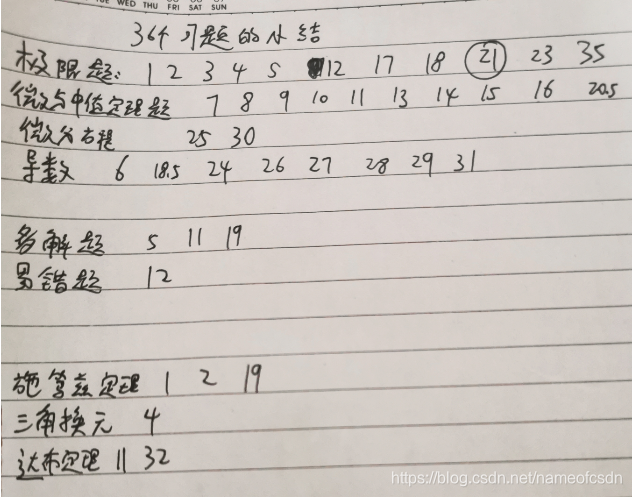 WED THU FRI SAT SUN
36个习题的小结
极限题: 1 2 3 4 5 12 17 18 21 23 35
微分与中值定理题 7 8 9 10 11 13 14 15 16 20.5
微分方程 25 30
导数 6 18.5 24 26 27 28 29 31
多解题 5 11 19
易错题 12
施笃兹定理 1 2 19
三角换元 4
达布定理 11 32
https://blog.csdn.net/nameofcsdn